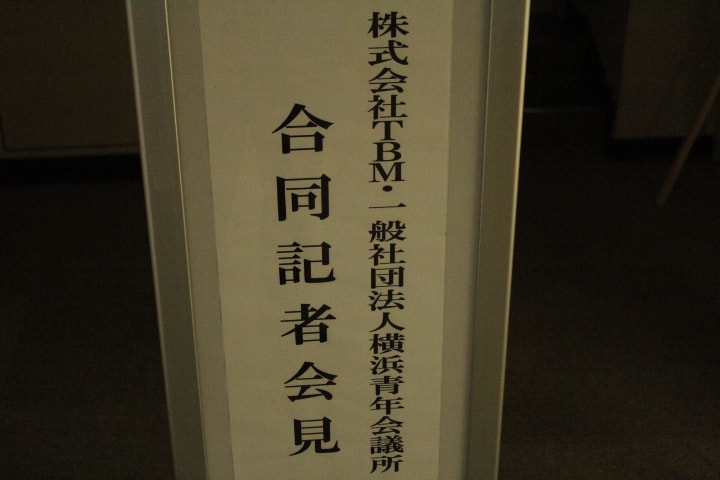 株式会社TBM・一般社団法人横浜青年会議所
合同記者会見